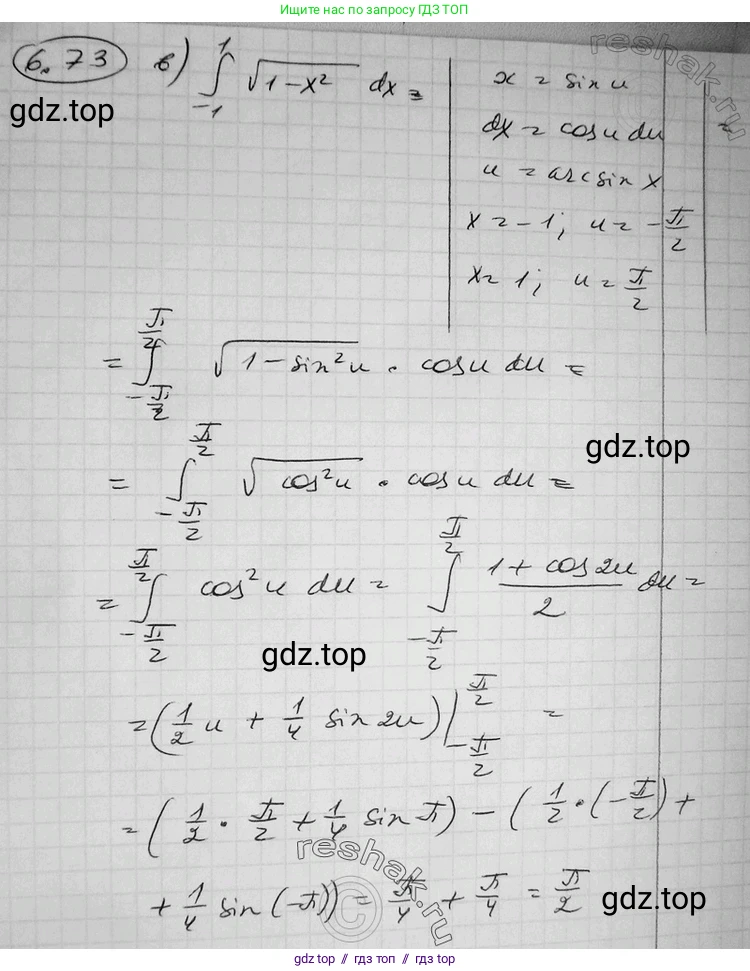 Ищите нас по запросу ГДЗ ТОП
6.73 в) ∫₋₁¹ √(1-x²) dx =
x = sin u
dx = cos u du
u = arcsin x
x = -1; u = -π/2
x = 1; u = π/2
=
gdz.top
reshak.ru
= ∫_{-π/2}^{π/2} √(1-sin²u) · cos u du =
gdz.top
= ∫_{-π/2}^{π/2} √(cos²u) · cos u du =
= ∫_{-π/2}^{π/2} cos²u du = ∫_{-π/2}^{π/2} (1+cos 2u)/2 du =
gdz.top
= (1/2 u + 1/4 sin 2u) |_{-π/2}^{π/2} =
= (1/2 · π/2 + 1/4 sin π) - (1/2 · (-π/2) +
+ 1/4 sin(-π)) = π/4 + π/4 = π/2
reshak.ru
©
gdz.top
gdz.top // гдз топ // гдз.top